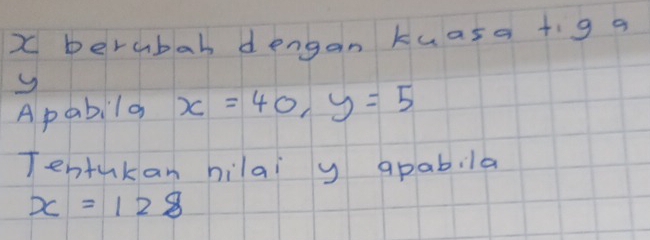 x berubah dengan kuasa tiga
y
Apabila x = 40, y = 5
Tentukan nilai y apabila
x = 128